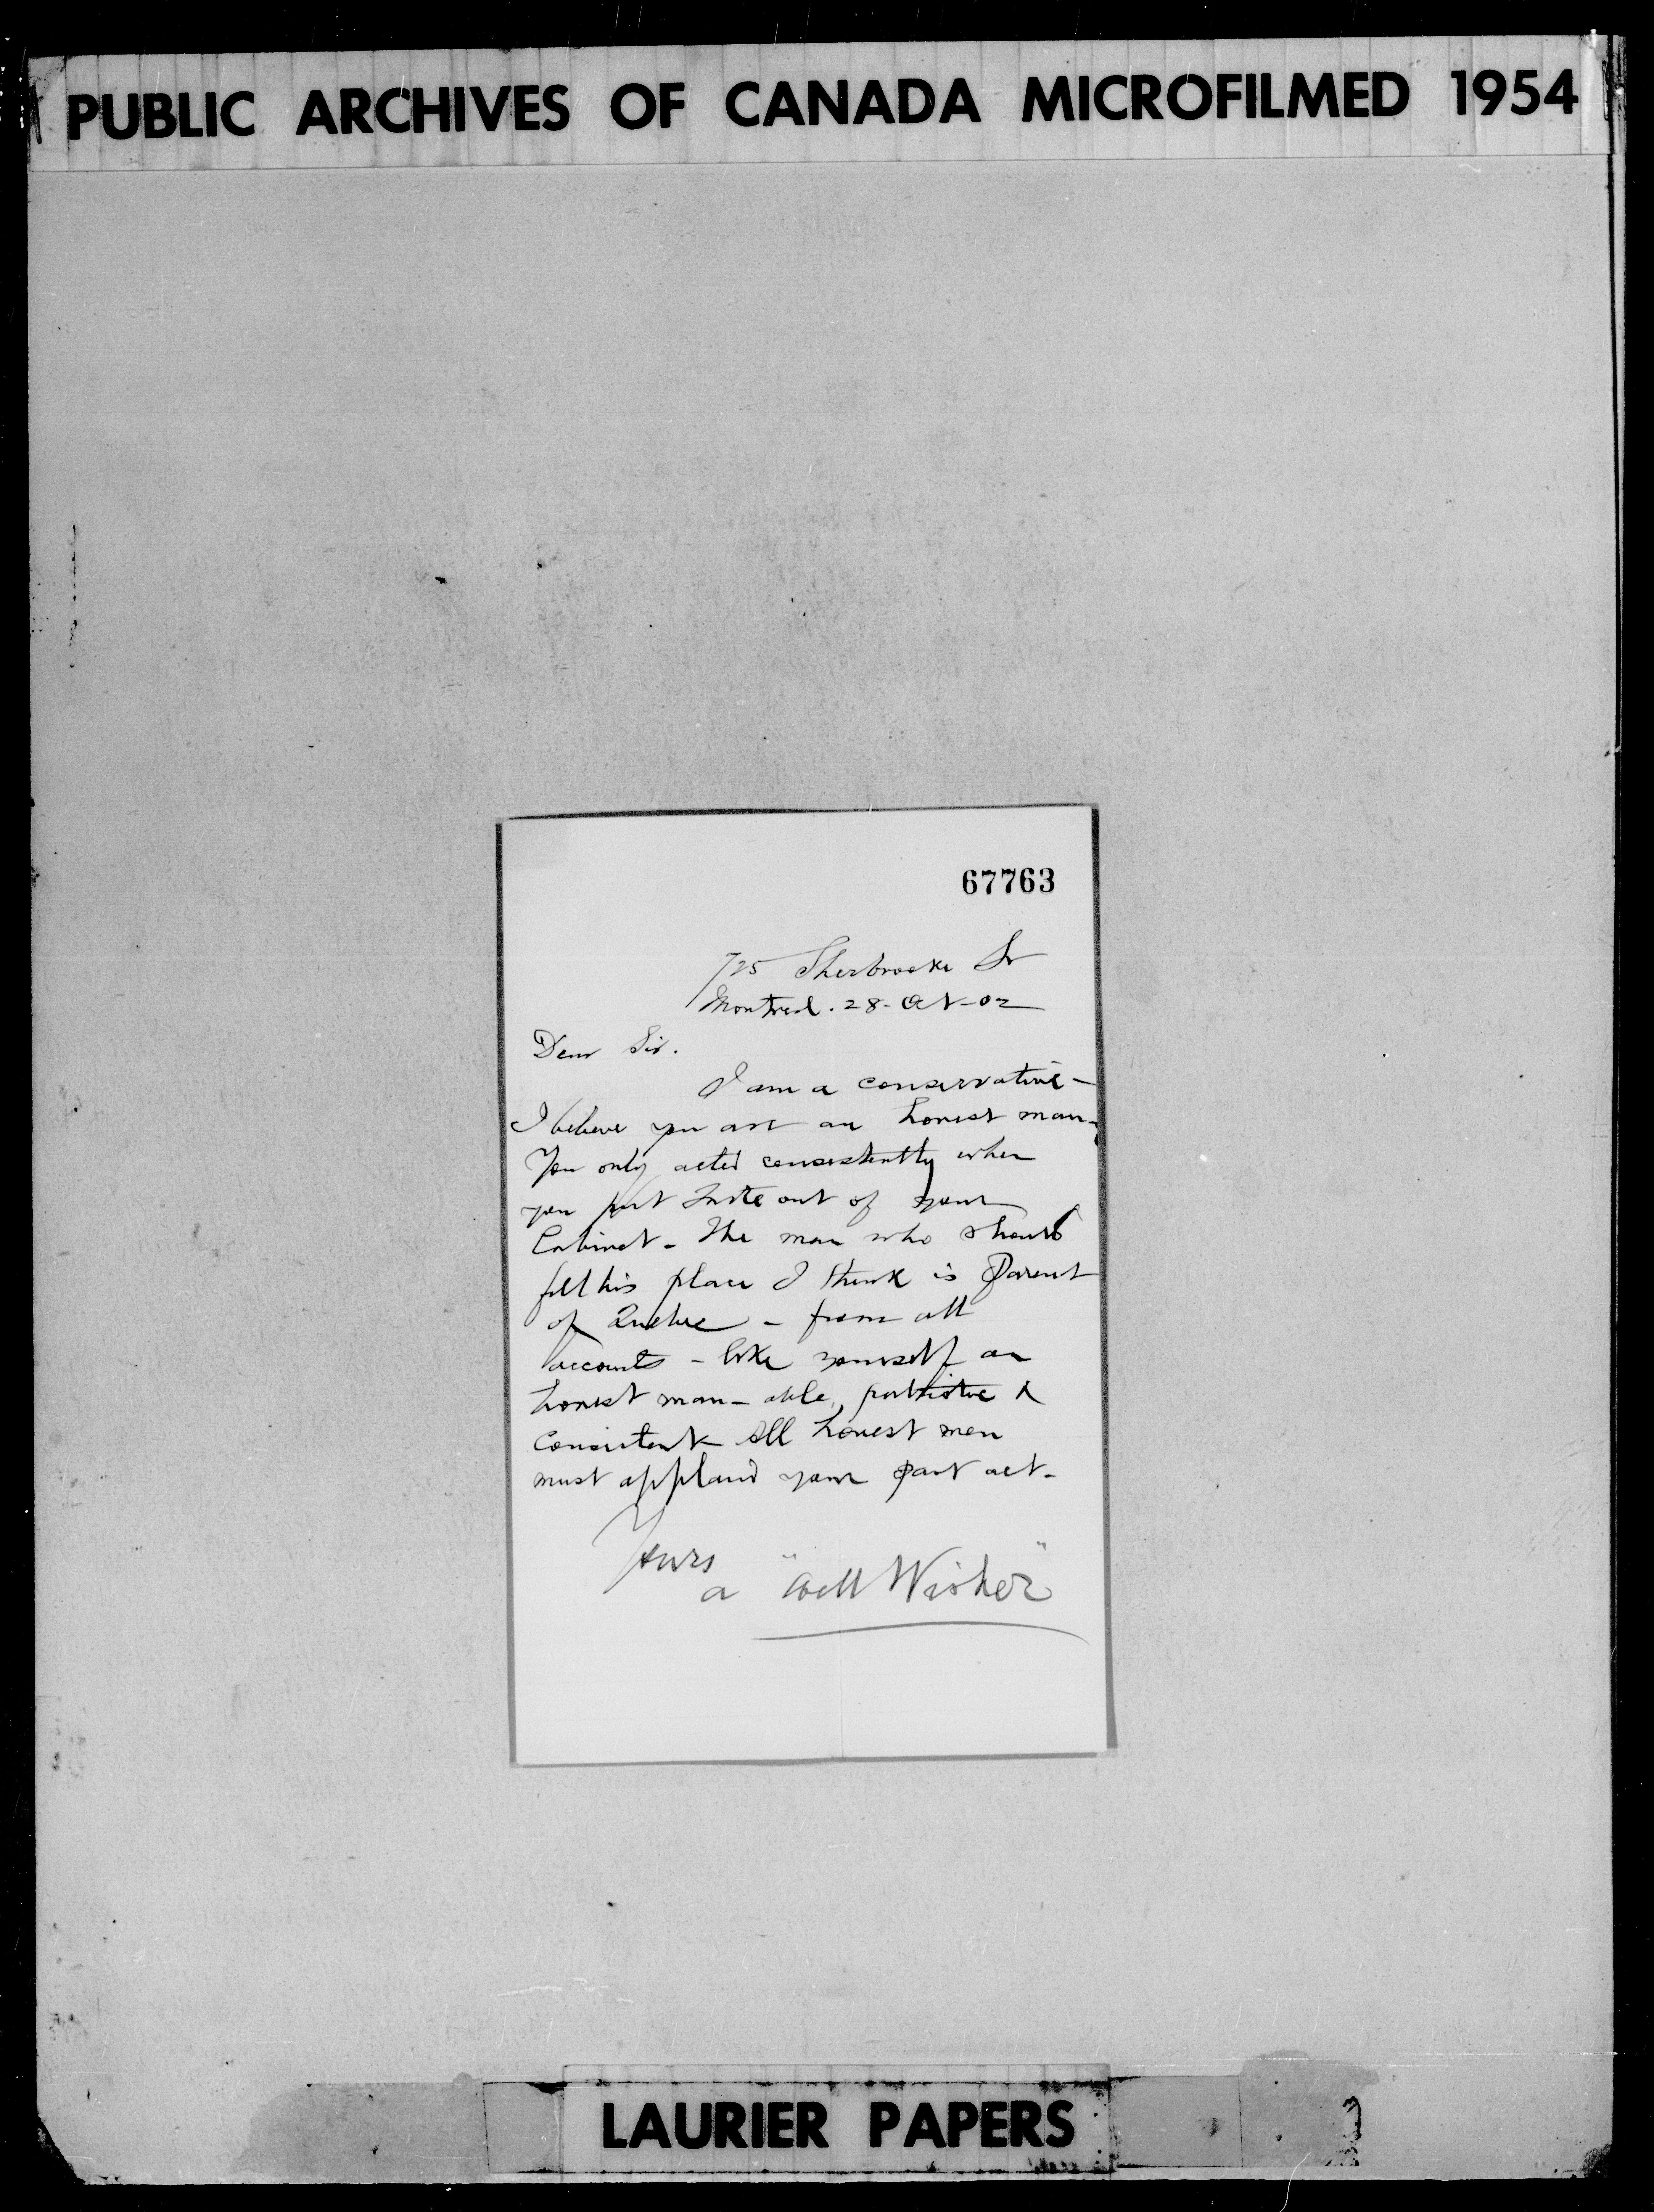 PUBLIC ARCHIVES OF CANADA MICROFILMED 1954
67763
725 Sherbrooke St
Montreal. 28-Oct-02
Dear Sir.
I am a conservative-
I believe you are an honest man-
You only acted consistently when
you put Tarte out of your
Cabinet - The man who should
fill his place I think is Parent
of Quebec - from all
accounts - like yourself an
honest man - able, patriotic &
Consistent - All honest men
must applaud your past act-
Yours
a "Well Wisher"
LAURIER PAPERS